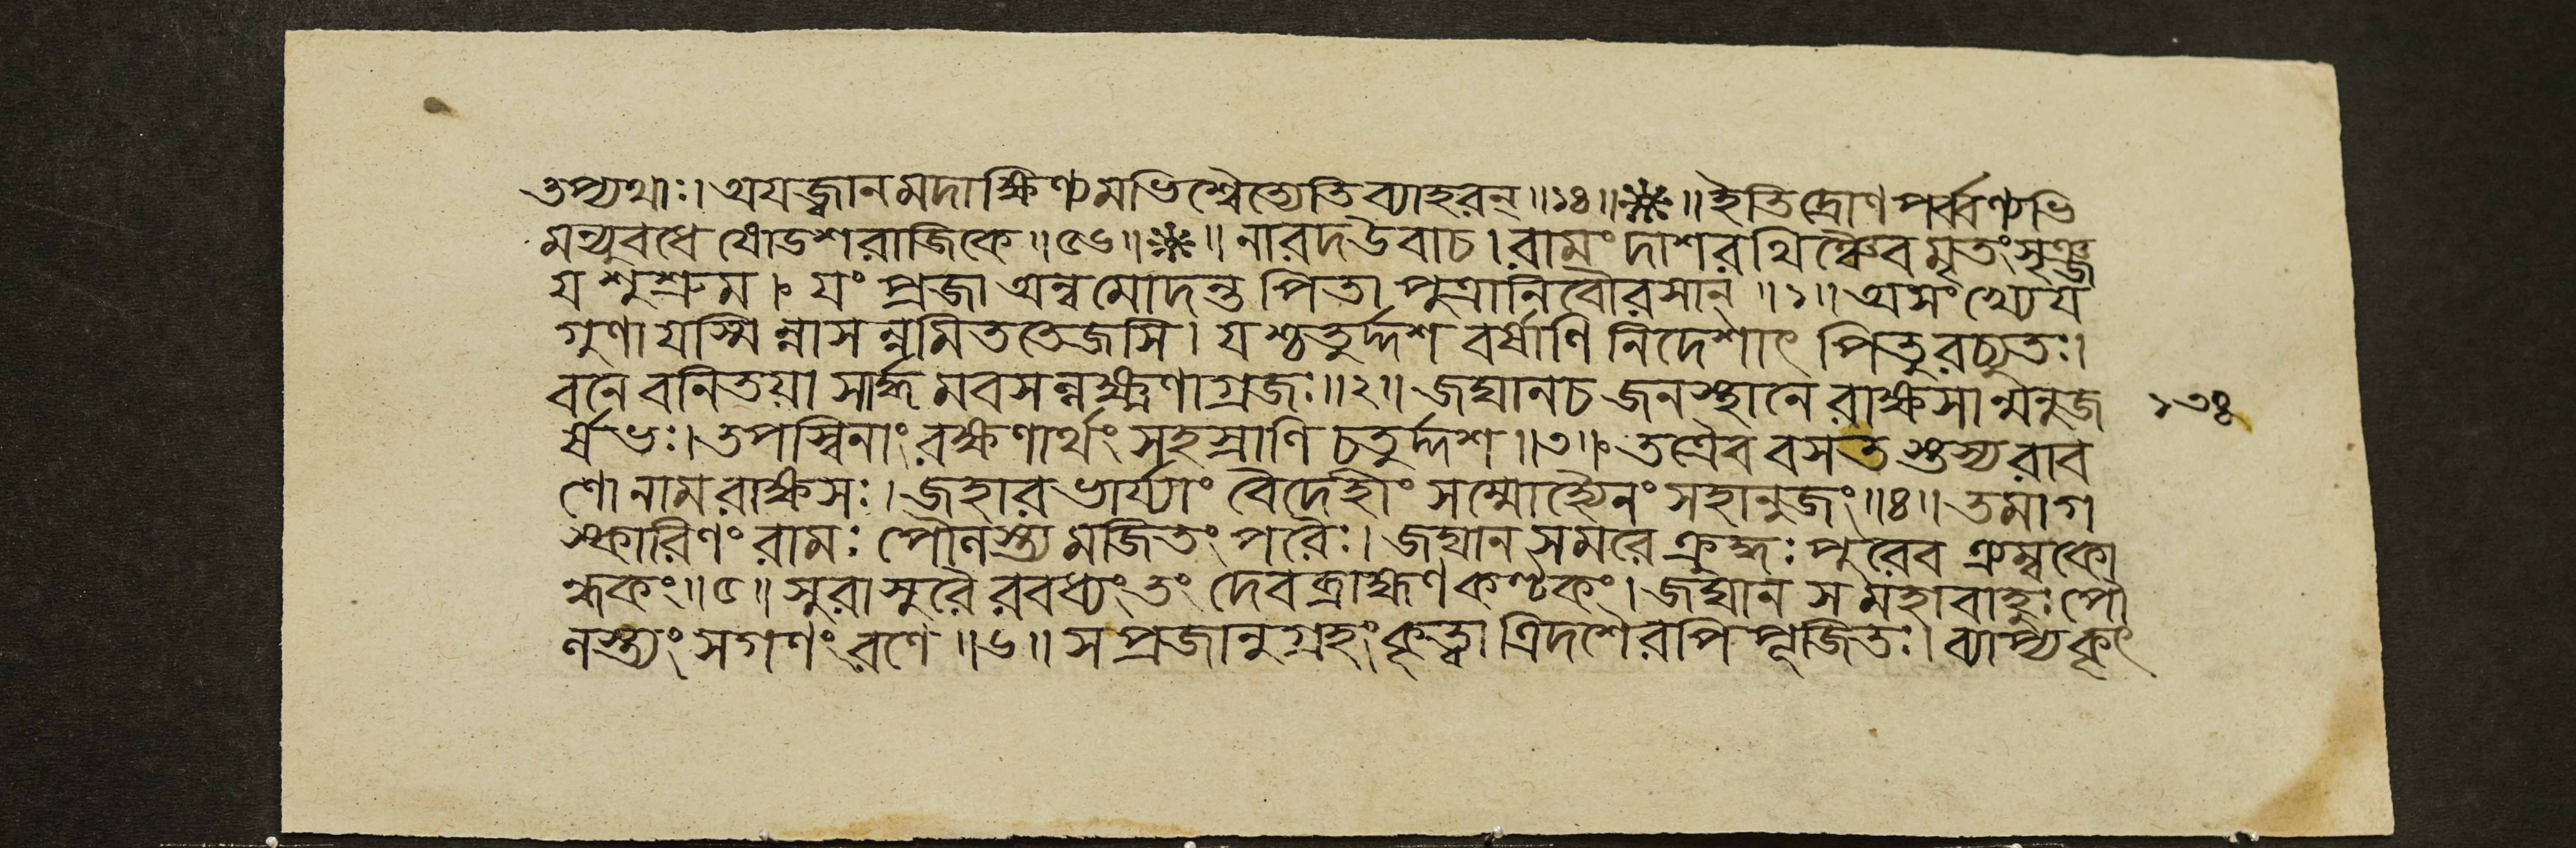 তপ্যথাঃ। অযজ্বানমদাক্ষিণ্যমভিশ্বৈত্যেতিব্যাহরন্॥১৪॥※॥ইতিদ্রোণপর্ব্বণ্যভি
মন্যুবধে ষোডশরাজিকে॥৫৬॥※॥ নারদউবাচ। রামং দাশরথিঞ্চৈব মৃতংসৃঞ্জ
য শুশ্রুম। যং প্রজা অন্বমোদন্ত পিতা পুত্রানিবৌরসান্॥১॥ অসংখ্যেয
গুণা যস্মিন্নাসন্নমিততেজসি। যশ্চতুর্দ্দশ বর্ষাণি নিদেশাৎ পিতুরচ্যুতঃ।
বনে বনিতয়া সার্দ্ধমবসল্লক্ষ্মণাগ্রজঃ॥২॥ জঘানচ জনস্থানে রাক্ষসান্মনুজ ১৩৪
র্ষভঃ। তপস্বিনাং রক্ষণার্থং সহস্রাণি চতুর্দ্দশ॥৩॥ তত্রৈব বসতস্তস্য রাব
ণো নাম রাক্ষসঃ। জহার ভার্য্যাং বৈদেহীং সম্মোহ্যৈনং সহানুজং॥৪॥ তমাগ
স্কারিণং রামঃ পৌলস্ত্যমজিতং পরৈঃ। জঘান সমরে ক্রুদ্ধঃ পুরেব ত্র্যম্বকো
ন্ধকং॥৫॥ সুরাসুরৈরবধ্যং তং দেবব্রাহ্মণকণ্টকং। জঘান স মহাবাহুঃ পৌ
লস্ত্যং সগণং রণে॥৬॥ স প্রজানুগ্রহং কৃত্বা ত্রিদশৈরপি পূজিতঃ। ব্যাপ্য কৃৎ